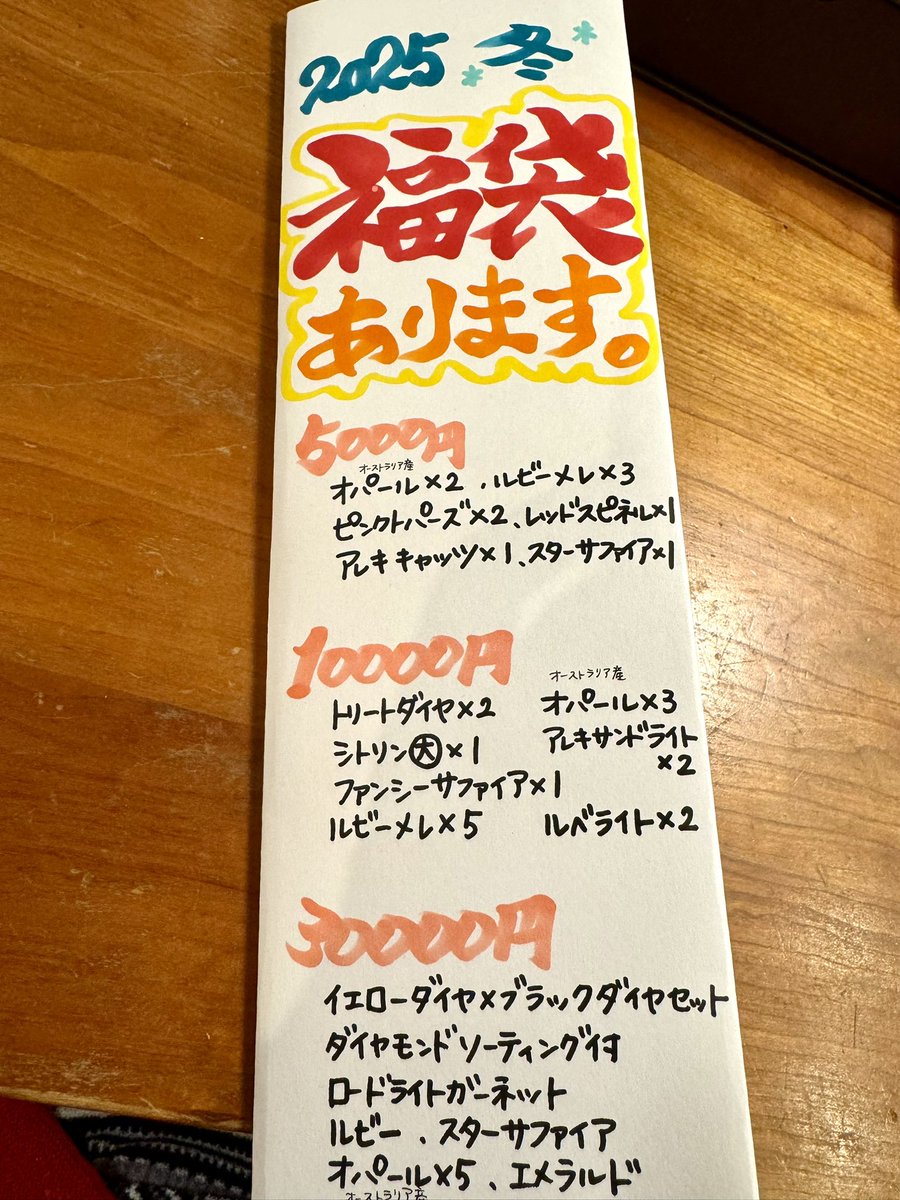 2025 冬
福袋
あります。
5000円
オーストラリア産
オパール×2、ルビーメレ×3
ピンクトパーズ×2、レッドスピネル×1
アレキキャッツ×1、スターサファイア×1
10000円
トリートダイヤ×2
シトリン大×1
ファンシーサファイア×1
ルビーメレ×5
オーストラリア産
オパール×3
アレキサンドライト
×2
ルベライト×2
30000円
イエローダイヤ×ブラックダイヤセット
ダイヤモンドソーティング付
ロードライトガーネット
ルビー、スターサファイア
オパール×5、エメラルド
オーストラリア産